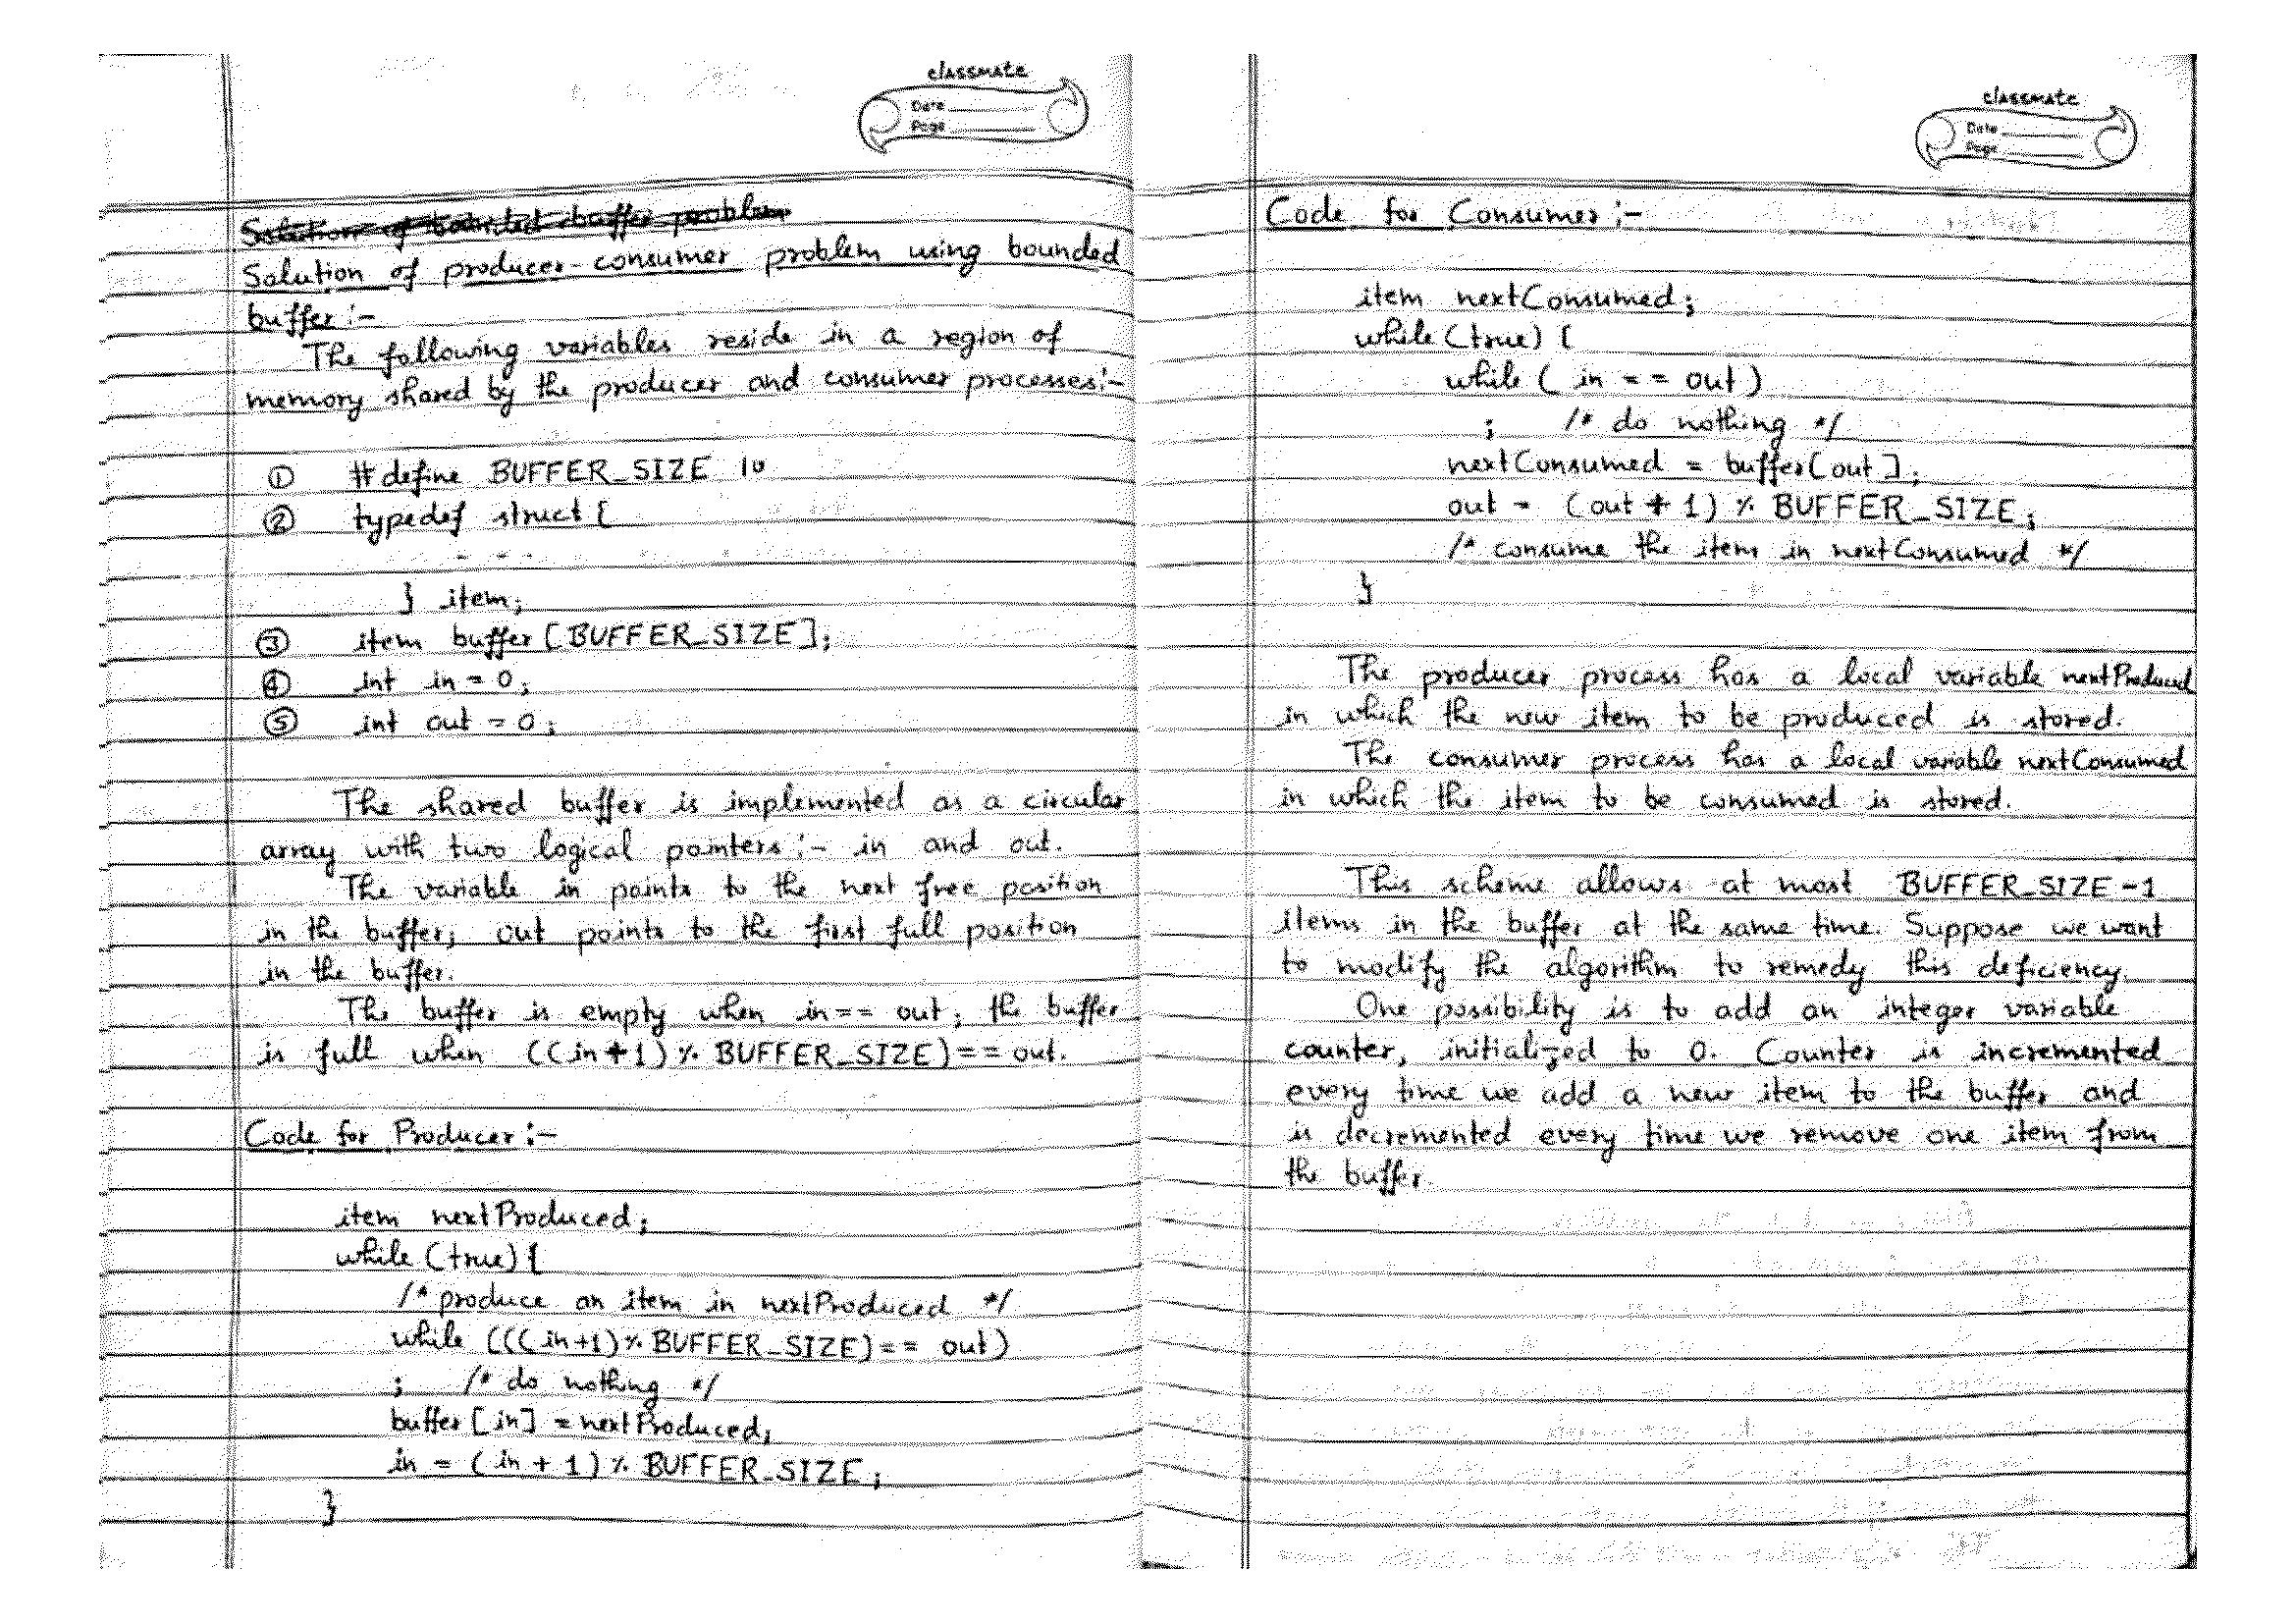 classmate
Date
Page
Solution of bounded buffer problem
Solution of producer-consumer problem using bounded
buffer :-
The following variables reside in a region of
memory shared by the producer and consumer processes:-
① #define BUFFER_SIZE 10
② typedef struct {
- - -
} item;
③ item buffer [BUFFER_SIZE];
④ int in = 0;
⑤ int out = 0;
The shared buffer is implemented as a circular
array with two logical pointers :- in and out.
The variable in points to the next free position
in the buffer; out points to the first full position
in the buffer.
The buffer is empty when in == out; the buffer
is full when ((in + 1) % BUFFER_SIZE) == out.
Code for Producer :-
item nextProduced;
while (true) {
/* produce an item in nextProduced */
while (((in+1) % BUFFER_SIZE) == out)
; /* do nothing */
buffer [in] = nextProduced;
in = (in + 1) % BUFFER_SIZE;
}
classmate
Date
Page
Code for Consumer :-
item nextConsumed;
while (true) {
while ( in == out )
; /* do nothing */
nextConsumed = buffer[out];
out = (out + 1) % BUFFER_SIZE;
/* consume the item in nextConsumed */
}
The producer process has a local variable nextProduced
in which the new item to be produced is stored.
The consumer process has a local variable nextConsumed
in which the item to be consumed is stored.
This scheme allows at most BUFFER_SIZE-1
items in the buffer at the same time. Suppose we want
to modify the algorithm to remedy this deficiency.
One possibility is to add an integer variable
counter, initialized to 0. Counter is incremented
every time we add a new item to the buffer and
is decremented every time we remove one item from
the buffer.